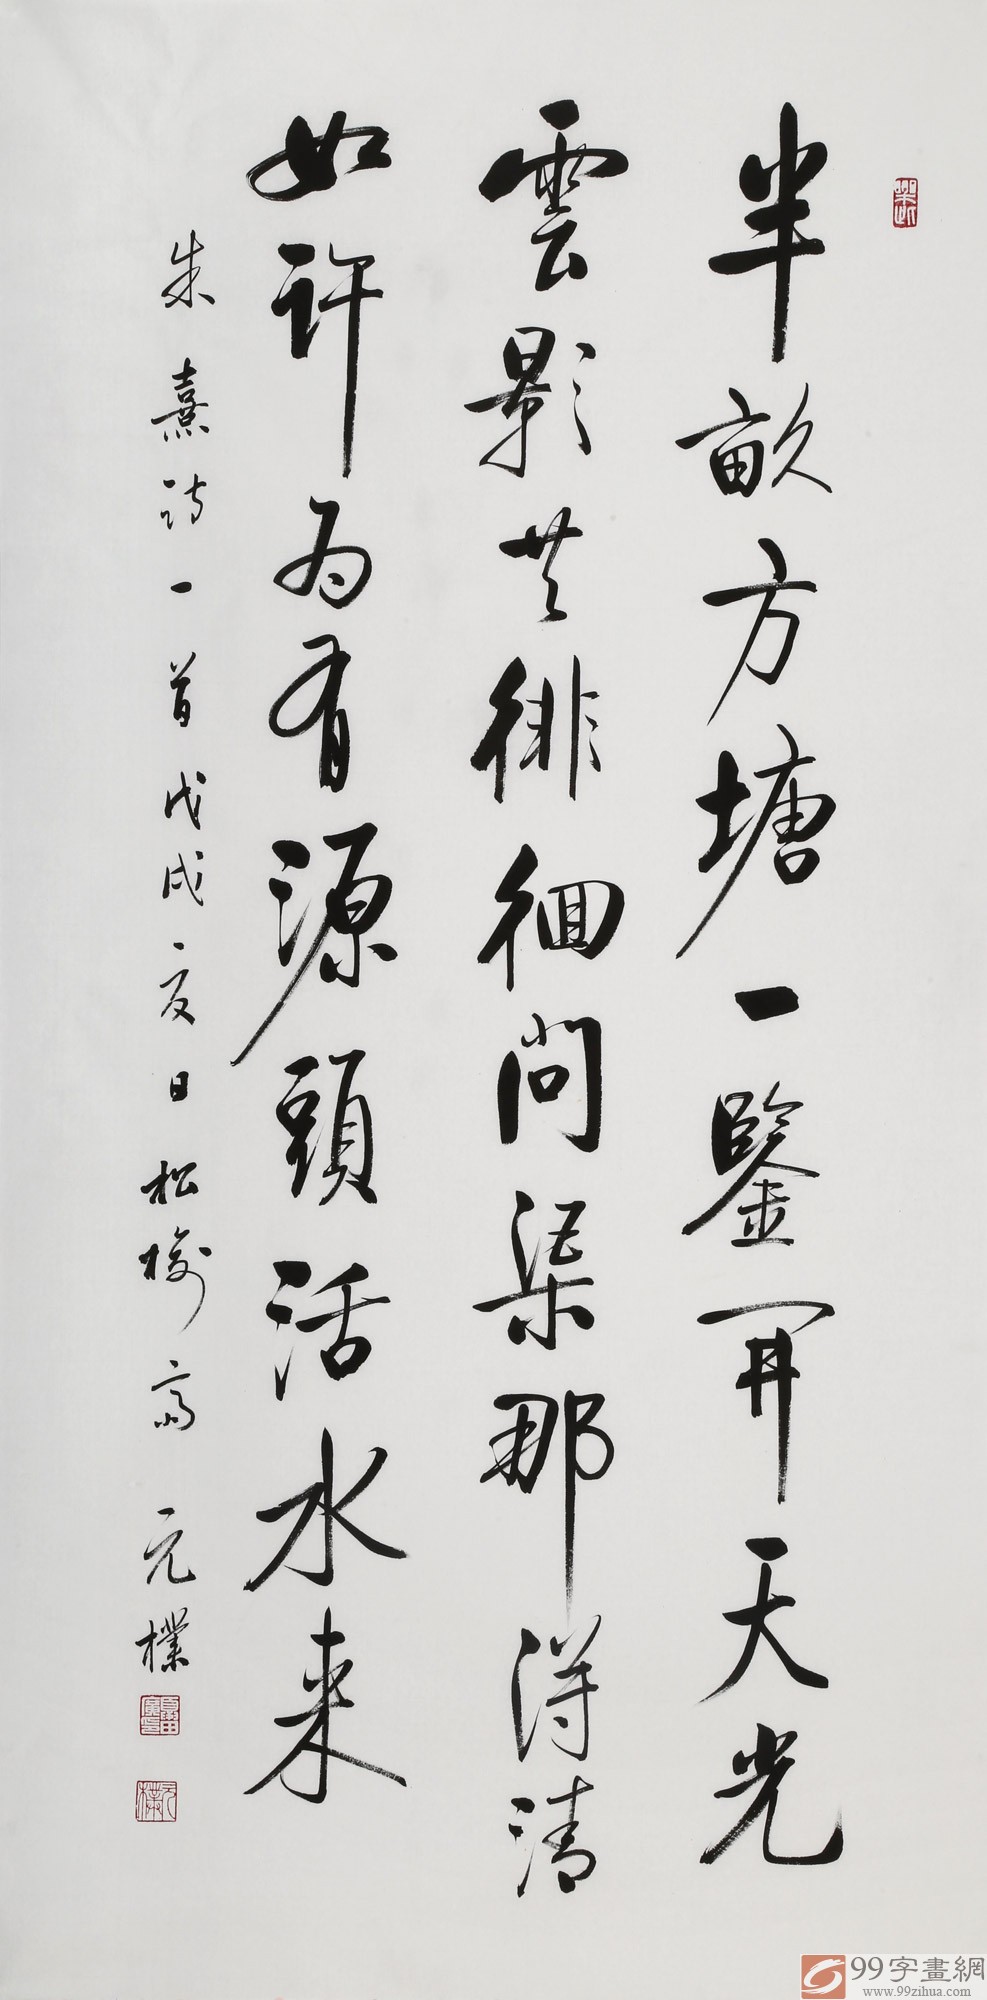 半畝方塘一鑒开天光
雲影共徘徊问渠那得清
如许为有源頭活水来
朱熹诗一首戊戌夏日松榆斋 元樸
99字畫網
www.99zihua.com